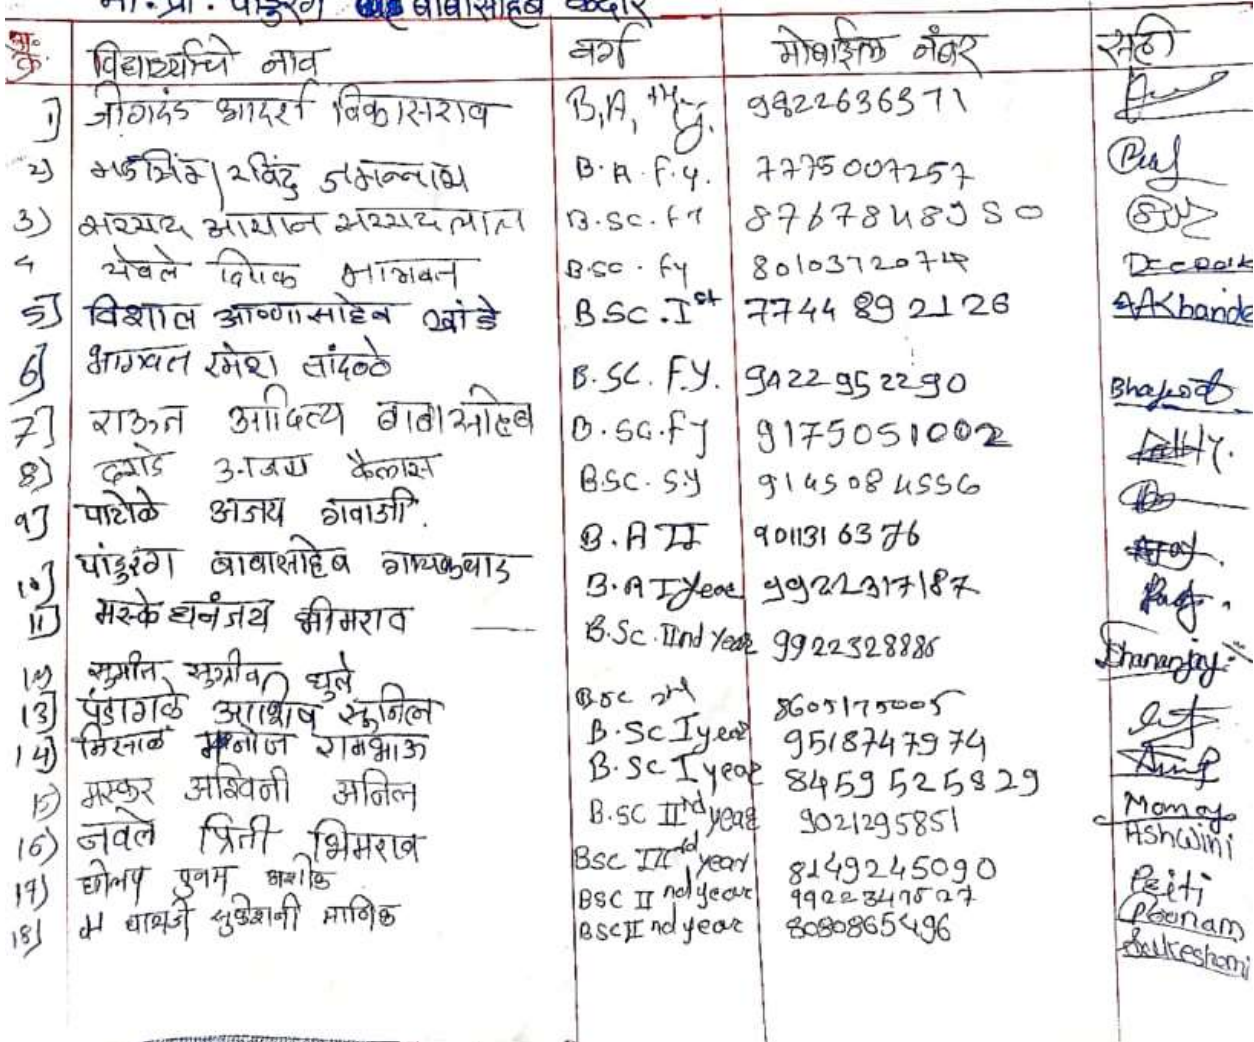 मा. प्रा. पांडुरंग बाबासाहेब
अ. क्र. विद्यार्थ्याचे नाव वर्ग मोबाईल नंबर सही
1] आदर्श विकासराव B.A. 9822636371
2) रविंद्र जगन्नाथ B.A. F.Y. 7775007257
3) सय्यद आयान सय्यद लाल B.SC. FY
4 येवले दिपक भागवत B.SC. FY Deepak
5] विशाल आण्णासाहेब खांडे BSC. Ist 7744892126 AAKhande
6] भागवत रमेश लांदळे B.SC. F.Y. 9422952290 Bhagwat
7] राऊत आदित्य बाबासाहेब B.SC. FY 9175051002
8) दराडे अजय कैलास BSC. SY
9] पाटोळे अजय गवाजी. B.A II 9011316376
10] पांडुरंग बाबासाहेब गायकवाड B.A I Year 9922317187
11] मस्के धनंजय भीमराव B.SC. IInd Year 9922328886 Dhananjay
12) सुमीत सुग्रीव धुले BSC 2nd 8605175005
13) पंडागळे आशिष सुनिल B.SC I year 9518747974
14) मिसाळ मनोज रामभाऊ B.SC I year 8459525829 Manoj
15) मस्कर अश्विनी अनिल B.SC IInd year 9021295851 Ashwini
16) नवले प्रिती भिमराव BSC year 8149245090 Priti
17) घोलप पुनम अशोक BSC II nd year Poonam
18) सुकेशनी माणिक BSC II nd year 8080865496 Sukeshani